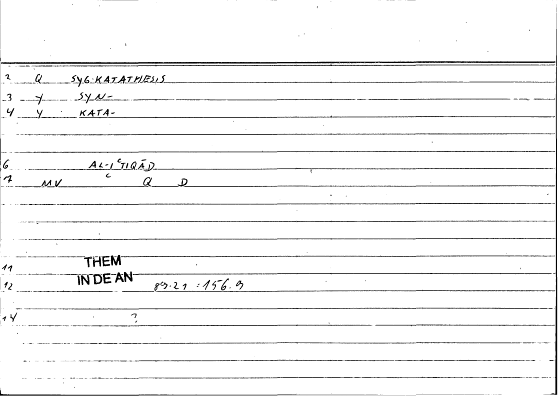 2 Q SYG-KATATHESIS
3 Y SYN-
4 Y KATA-
6 AL-IʿTIQĀD
7 MV ʿ Q D
11 THEM
IN DE AN
12 89.21 : 156.9
14 ?